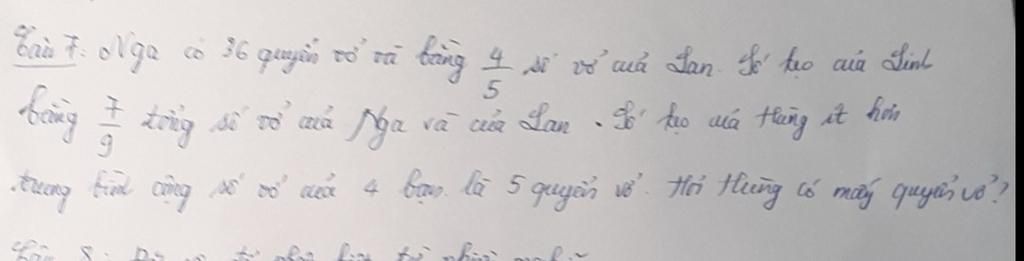 Câu 7: Nga có 36 quyển vở và bằng 4/5 số vở của Lan. Số kẹo của Linh
bằng 7/9 tổng số vở của Nga và của Lan. Số kẹo của Hùng ít hơn
trung bình cộng số vở của 4 bạn là 5 quyển vở. Hỏi Hùng có mấy quyển vở?
Câu 8: